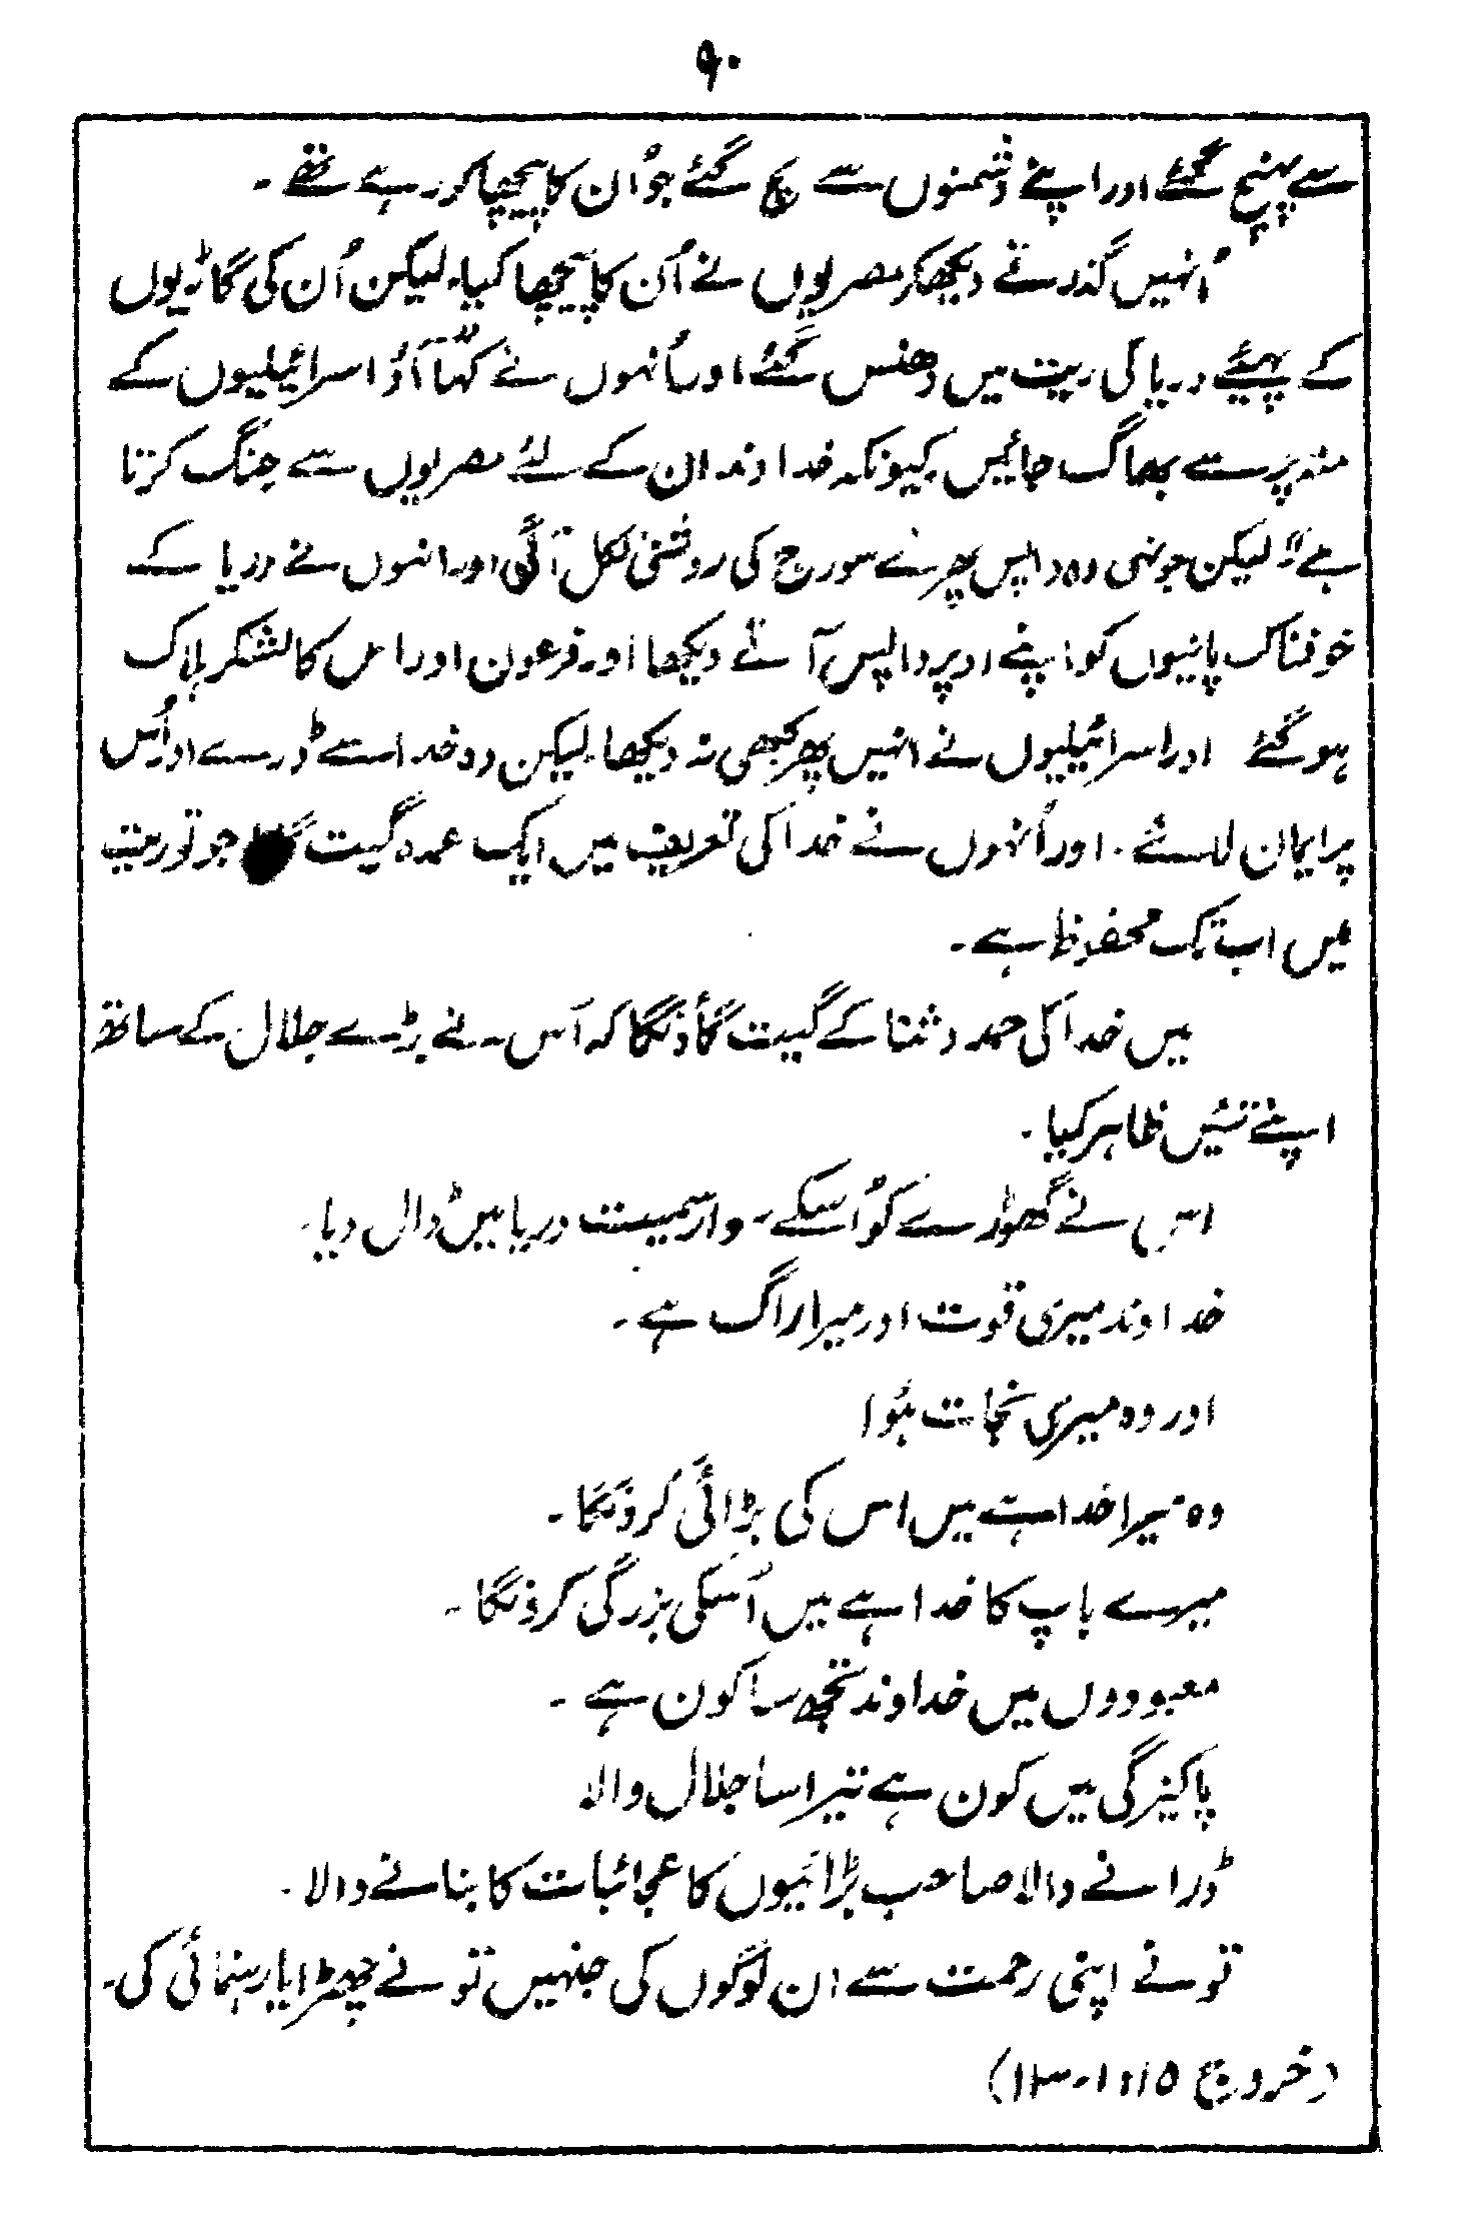 ۹۰
سے پہنچ گئے اور اپنے دُشمنوں سے بچ گئے جو اُن کا پیچھا کر رہے تھے۔
اُنہیں گذرتے دیکھکر مصریوں نے اُن کا پیچھا کیا۔ لیکن اُن کی گاڑیوں
کے پہئیے دریا کی ریت میں دھنس گئے اور اُنہوں نے کہا ”آؤ اسرائیلیوں کے
منہ پر سے بھاگ جائیں کیونکہ خداوند ان کے لئے مصریوں سے جنگ کرتا
ہے“ لیکن جونہی وہ واپس پھرے سورج کی روشنی نکل آئی اور انہوں نے دریا کے
خوفناک پانیوں کو اپنے اوپر واپس آتے دیکھا اور فرعون اور اس کا لشکر ہلاک
ہو گئے اور اسرائیلیوں نے انہیں پھر کبھی نہ دیکھا۔ لیکن وہ خدا سے ڈرے اور اُس
پر ایمان لائے۔ اور اُنہوں نے خدا کی تعریف میں ایک عمدہ گیت جو توریت
میں اب تک محفوظ ہے۔
میں خدا کی حمد و ثنا کے گیت گاؤنگا کہ اُس نے بڑے جلال کے ساتھ
اپنے تئیں ظاہر کیا۔
اس نے گھوڑے کو اُسکے سوار سمیت دریا میں ڈال دیا۔
خداوند میری قوت اور میرا راگ ہے۔
اور وہ میری نجات ہُوا
وہ میرا خدا ہے میں اس کی بڑائی کرونگا۔
میرے باپ کا خدا ہے میں اُسکی بزرگی کرونگا۔
معبودوں میں خداوند تجھ سا کون ہے۔
پاکیزگی میں کون ہے تیرا سا جلال والا
ڈرانے والا صاحب بڑائیوں کا عجائبات کا بنانے والا۔
تو نے اپنی رحمت سے ان لوگوں کی جنہیں تو نے چھڑایا رہنمائی کی۔
(خروج ۱۵: ۱-۱۳)